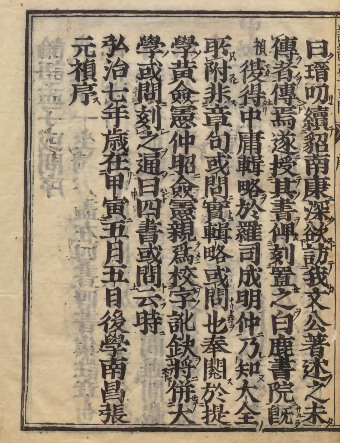 曰瑨叨續貂南康深欲訪我文公著述之未
傳者傳焉遂授其書俾刻置之白鹿書院既
禎後得中庸輯略於羅司成明仲乃知大全
所附非章句或問實輯略或問也奉閱於提
學黃僉憲仲昭僉憲親為校字訛缺將併大
學或問刻之通曰四書或問云時
弘治七年歲在甲寅五月五日後學南昌張
元禎序